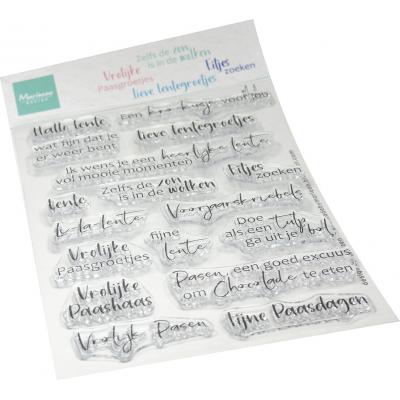 Marianne
DESIGN
Zelfs de zon
is in de wolken
Vrolijke
Paasgroetjes
Eitjes
zoeken
lieve lentegroetjes
Een
voor jou
Hallo lente
wat fijn dat je
er weer bent
lieve lentegroetjes
Ik wens je een heerlijke lente
vol mooie momenten
Eitjes
zoeken
Zelfs de zon
is in de wolken
lente
Voorjaarskriebels
la lente
fijne
lente
Doe
als een tulp
ga uit je bol
Vrolijke
paasgroetjes
Pasen, een goed excuus
om Chocolade te eten
Vrolijke
Paashaas
Vrolijk Pasen
fijne Paasdagen